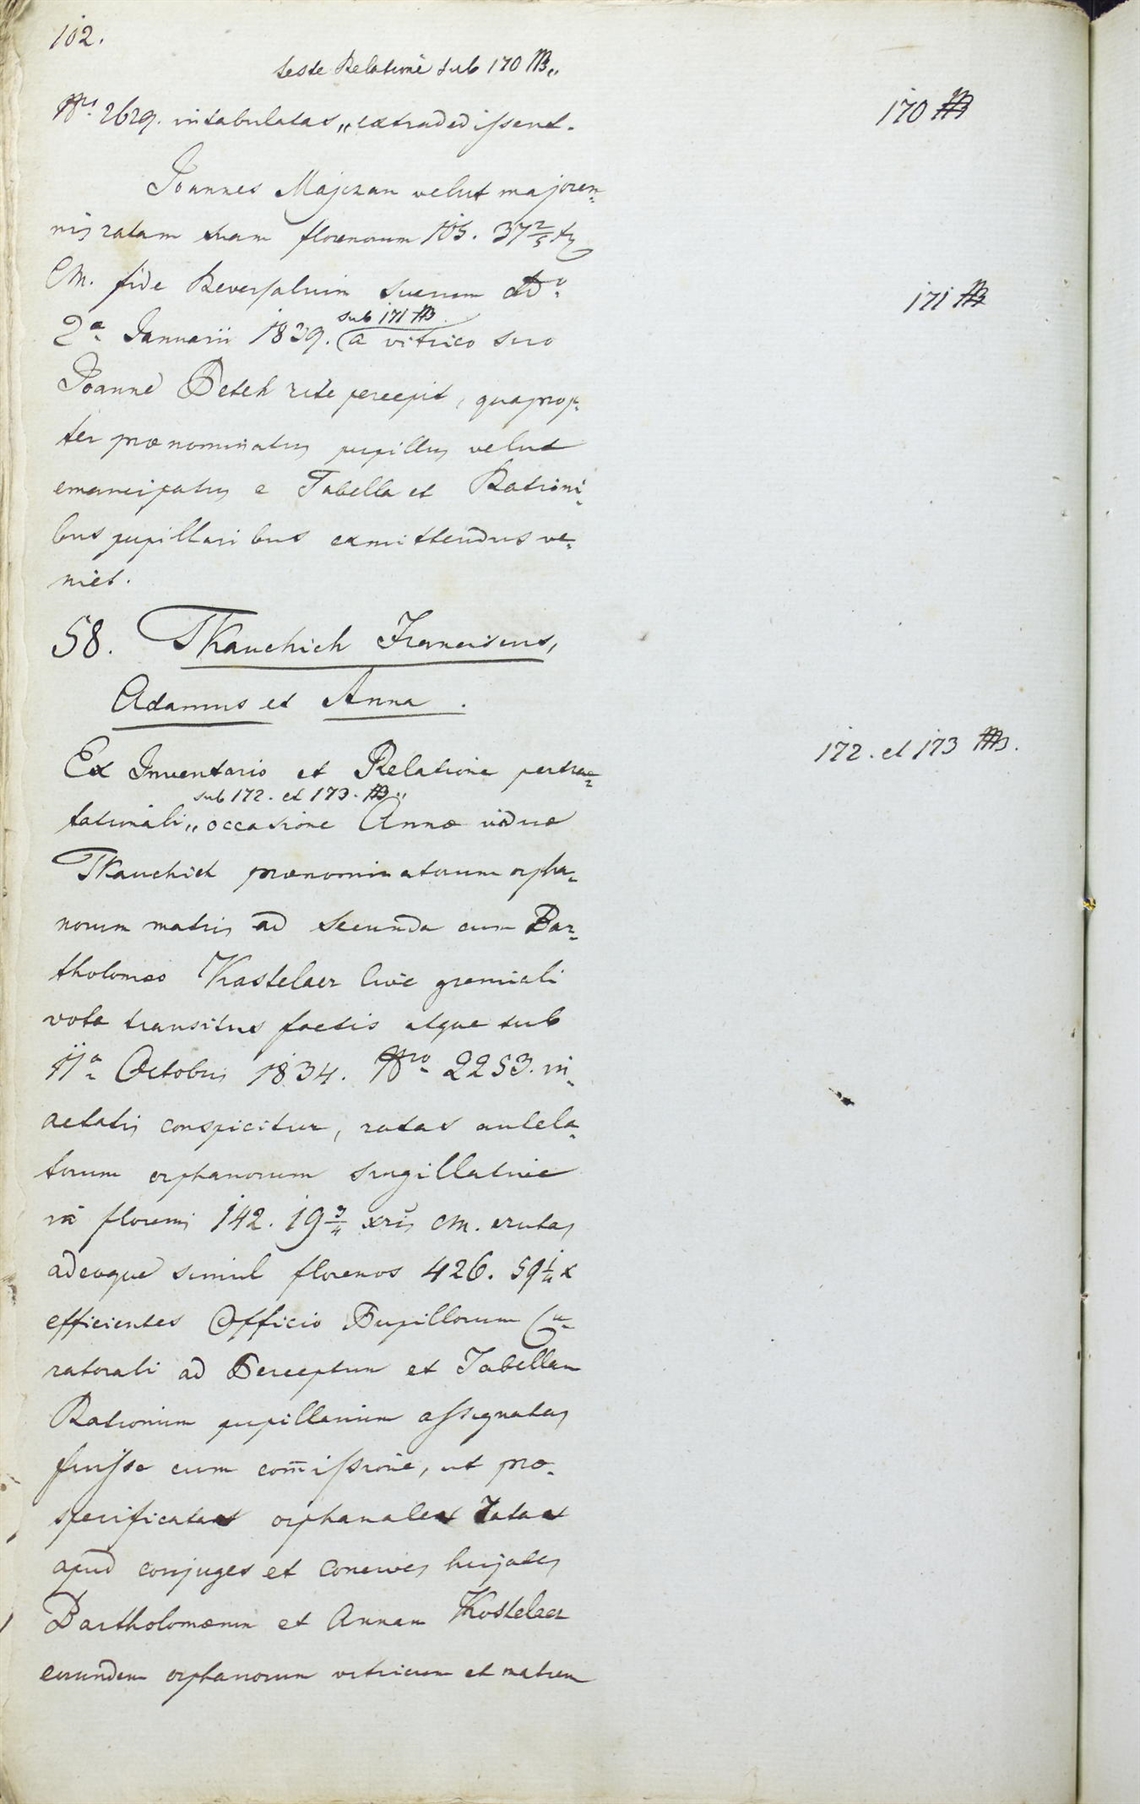 102.
teste Relatione sub 170
Nri 2629. intabulatas „ extradedissent.
170
Joannes Majczan velut majoren-
nis ratam suam florenorum 105. 37 2/5 xr
CM. fide Reversalium suarum ddo
171
2a Januarii 1839. a vitrico suo
sub 171
Joanne Petek rite percepit, quaprop-
ter prænominatus pupillus velut
emancipatus e Tabella et Rationi-
bus pupillaribus exmittendus ve-
niet.
58. Tkauchich Franciscus,
Adamus et Anna.
Ex Inventario et Relatione pertrac-
172. et 173
sub 172. et 173.
tationali „ occasione Annæ viduæ
Tkauchich prænominatorum orpha-
norum matris ad secunda cum Bar-
tholomæo Kastelaer Cive gremiali
vota transitus factis atque sub
11a Octobris 1834. Nro 2253. in-
actatis conspicitur, ratas antela-
torum orphanorum singillative
in florenis 142. 19 3/4 xris CM. erutas
adeoque simul florenos 426. 59 1/4 x
efficientes Officio Pupillorum Cu-
ratorali ad Perceptum et Tabellam
Rationum pupillarium assignatas
fuisse cum com̄issione, ut præ-
specificatas orphanales ratas
apud conjuges et concives hujates
Bartholomæum et Annam Kostelaer
eorundem orphanorum vitricum et matrem